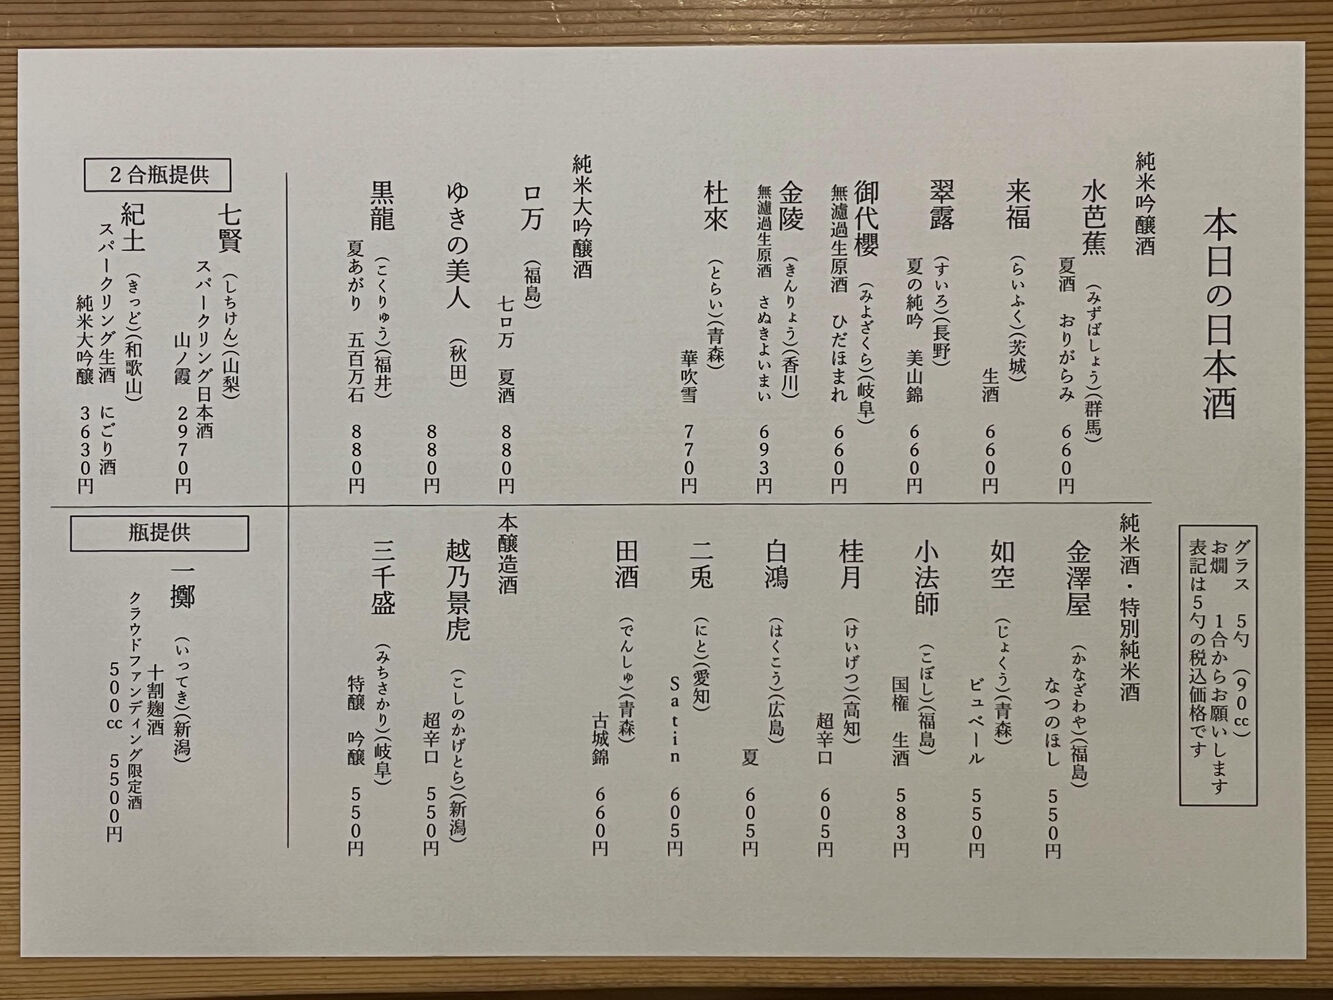 本日の日本酒
グラス　5勺　(90cc)
お燗　1合からお願いします
表記は5勺の税込価格です
純米吟醸酒
水芭蕉　(みずばしょう)(群馬)
夏酒　おりがらみ　660円
来福　(らいふく)(茨城)
生酒　660円
翠露　(すいろ)(長野)
夏の純吟　美山錦　660円
御代櫻　(みよざくら)(岐阜)
無濾過生原酒　ひだほまれ　660円
金陵　(きんりょう)(香川)
無濾過生原酒　さぬきよいまい　693円
杜來　(とらい)(青森)
華吹雪　770円
純米大吟醸酒
ロ万　(福島)
七ロ万　夏酒　880円
ゆきの美人　(秋田)
880円
黒龍　(こくりゅう)(福井)
夏あがり　五百万石　880円
純米酒・特別純米酒
金澤屋　(かなざわや)(福島)
なつのほし　550円
如空　(じょくう)(青森)
ビュベール　550円
小法師　(こぼし)(福島)
国権　生酒　583円
桂月　(けいげつ)(高知)
超辛口　605円
白鴻　(はくこう)(広島)
夏　605円
二兎　(にと)(愛知)
Satin　605円
田酒　(でんしゅ)(青森)
古城錦　660円
本醸造酒
越乃景虎　(こしのかげとら)(新潟)
超辛口　550円
三千盛　(みちさかり)(岐阜)
特醸　吟醸　550円
2合瓶提供
七賢　(しちけん)(山梨)
スパークリング日本酒
山ノ霞　2970円
紀土　(きっど)(和歌山)
スパークリング生酒　にごり酒
純米大吟醸　3630円
瓶提供
一擲　(いってき)(新潟)
十割麹酒
クラウドファンディング限定酒
500cc　5500円